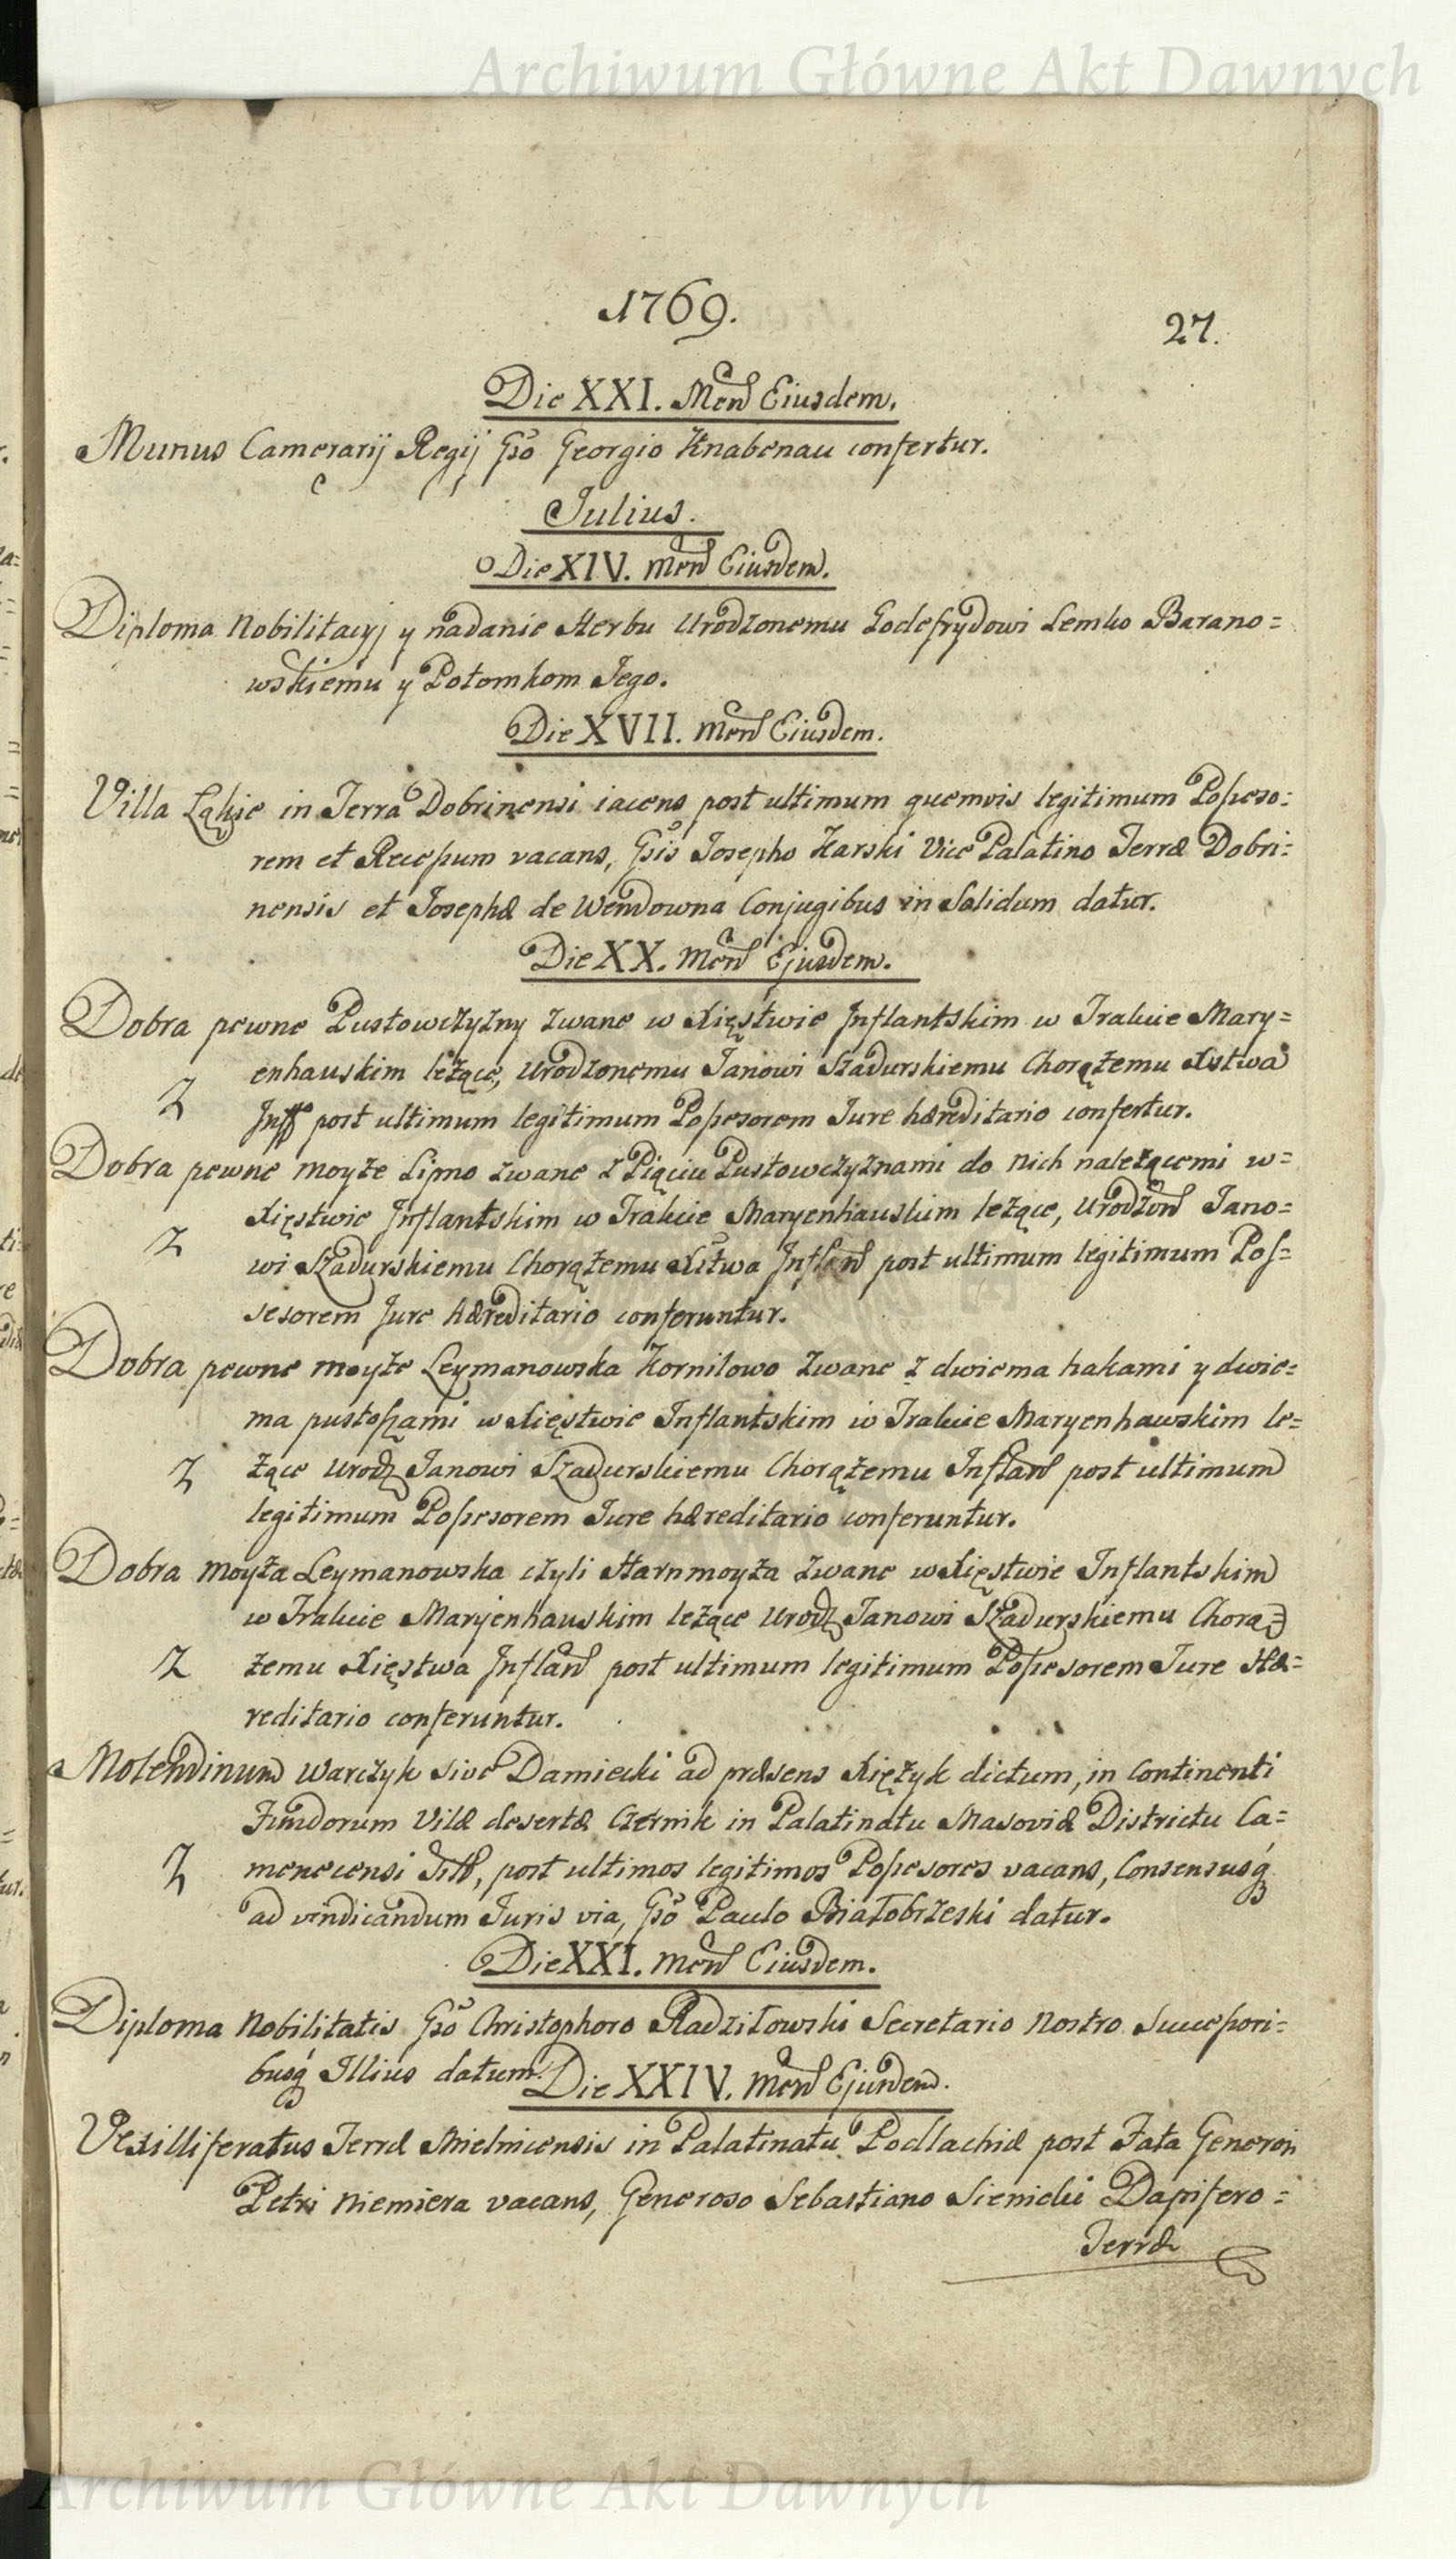 Archiwum Główne Akt Dawnych
1769.
27.
Die XXI. Men Eiusdem.
Munus Camerarij Regij Gso Georgio Knabenau confertur.
Julius.
Die XIV. Men Eiusdem.
Diploma Nobilitacyj y nadanie Herbu Urodzonemu Godefrydowi Lemko Barano=
wskiemu y Potomkom Jego.
Die XVII. Men Eiusdem.
Villa Łąkie in Terra Dobrinensi iacens post ultimum quemvis legitimum Posseso=
rem et Recessum vacans, Gsis Josepho Karski Vice Palatino Terræ Dobri=
nensis et Josephæ de Wendowna Conjugibus in Solidum datur.
Die XX. Men Ejusdem.
Dobra pewne Pustowczyzny zwane w Xięstwie Inflantskim w Trakcie Mary=
enhauskim leżące, Urodzonemu Janowi Szadurskiemu Chorążemu Xstwa
Z Infl post ultimum legitimum Possesorem Jure hæreditario confertur.
Dobra pewne moyże Lipno zwane z Pięciu Pustowczyznami do nich należącemi w=
Xięstwie Inflantskim w Trakcie Maryenhauskim leżące, Urodzon Jano=
Z wi Szadurskiemu Chorążemu Xstwa Inflan post ultimum legitimum Pos=
sesorem Jure Hæreditario conferuntur.
Dobra pewne moyże Leymanowska Kornilowo zwane z dwiema hakami y dwie=
ma pustoszami w Xięstwie Inflantskim w Trakcie Maryenhawskim le=
Z żące Urodz Janowi Szadurskiemu Chorążemu Inflan post ultimum
legitimum Possesorem Jure hæreditario conferuntur.
Dobra moyża Leymanowska czyli Harnmoyża zwane w Xięstwie Inflantskim
w Trakcie Maryenhauskim leżące Urodz Janowi Szadurskiemu Chorą=
Z żemu Xięstwa Inflan post ultimum legitimum Possesorem Jure Hæ=
reditario conferuntur.
Molendinum Warczyk sive Damiecki ad præsens Xiężyk dictum, in Continenti
Fundorum Vilæ desertæ Czernik in Palatinatu Masoviæ Districtu Ca=
Z menecensi sit, post ultimos legitimos Possesores vacans, Consensusq
ad vindicandum Juris via, Gso Paulo Białobrzeski datur.
Die XXI. Men Eiusdem.
Diploma Nobilitatis Gso Christophoro Radziłowski Secretario Nostro Successori=
busq Illius datum.
Die XXIV. Men Ejusdem.
Vexilliferatus Terræ Mielnicensis in Palatinatu Podlachiæ post Fata Generosi
Petri Niemiera vacans, Generoso Sebastiano Sienicki Dapifero=
Terræ
Archiwum Główne Akt Dawnych